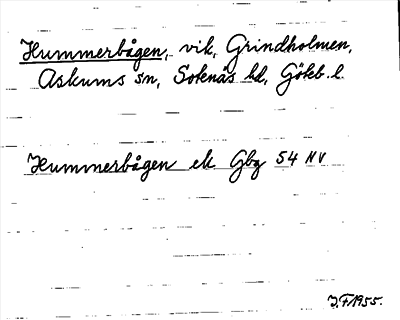 Hummerbågen, vik, Grindholmen,
Askums sn, Sotenäs hd, Göteb. l.
Hummerbågen ek Gbg 54 NV
J.F. 1955.